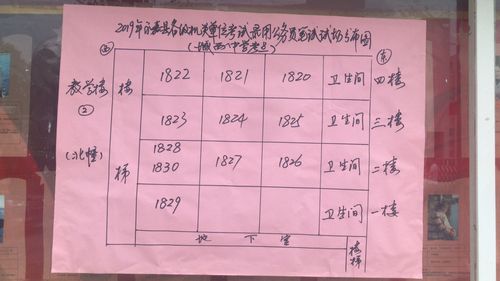 2019年永嘉县各级机关单位考试录用公务员笔试试场分布图
(城西中学考区)
西 东
教学楼 楼 1822 1821 1820 卫生间 四楼
② 1823 1824 1825 卫生间 三楼
(北幢) 梯 1828 1830 1827 1826 卫生间 二楼
1829 卫生间 一楼
地下室 楼梯